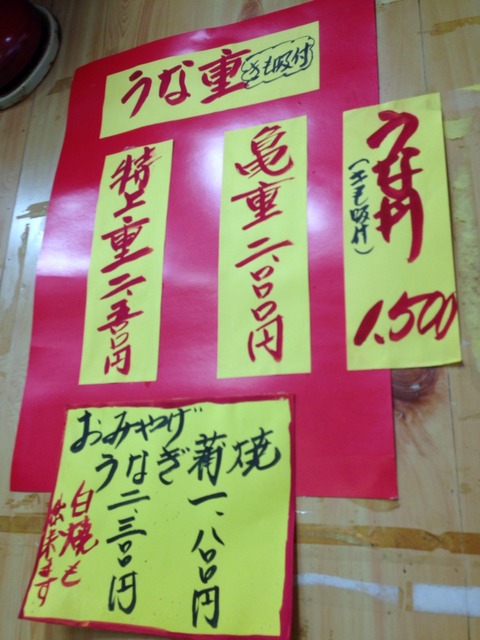 うな重 きも吸付
うな丼
(きも吸付)
1,500
亀重 二、〇〇〇円
特上重 二、五〇〇円
おみやげ
うなぎ蒲焼
一、八〇〇円
二、三〇〇円
白焼も
出来ます